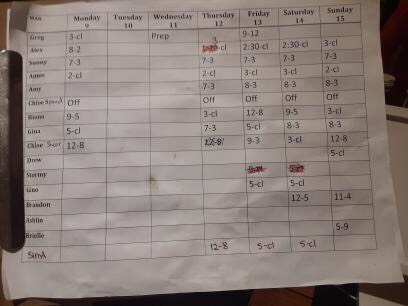 MAR Monday 9 Tuesday 10 Wednesday 11 Thursday 12 Friday 13 Saturday 14 Sunday 15
Greg 3-cl Prep 9-12
Alex 8-2 3-cl 2:30-cl 2:30-cl 3-cl
Sunny 7-3 7-3 7-3 7-3 7-3
Amos 2-cl 2-cl 3-cl 3-cl 2-cl
Amy 7-3 8-3 8-3 8-3
Chloe Off Off Off Off Off
9-5 3-cl 12-8 9-5 3-cl
Gina 5-cl 7-3 5-cl 8-3 8-3
Chloe 12-8 12-8 9-3 3-cl 12-8
Drew 5-cl
Stormy
Gino 5-cl 5-cl
Brandon 12-5 11-4
Ashlin
Brielle 5-9
12-8 5-cl 5-cl